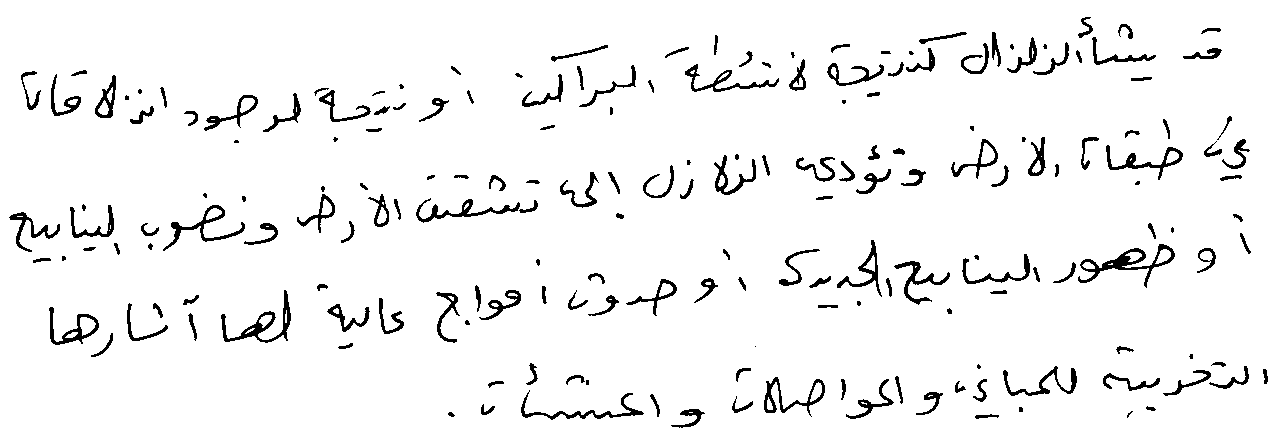 قد ينشأ الزلزال كنتيجة لأنشطة البراكين أو نتيجة لوجود انزلاقات
في طبقات الأرض وتؤدي الزلازل إلى تشقق الأرض ونضوب الينابيع
أو ظهور الينابيع الجديدة أو حدوث أمواج عالية لها آثارها
التخريبية للمباني والمواصلات والمنشأت .